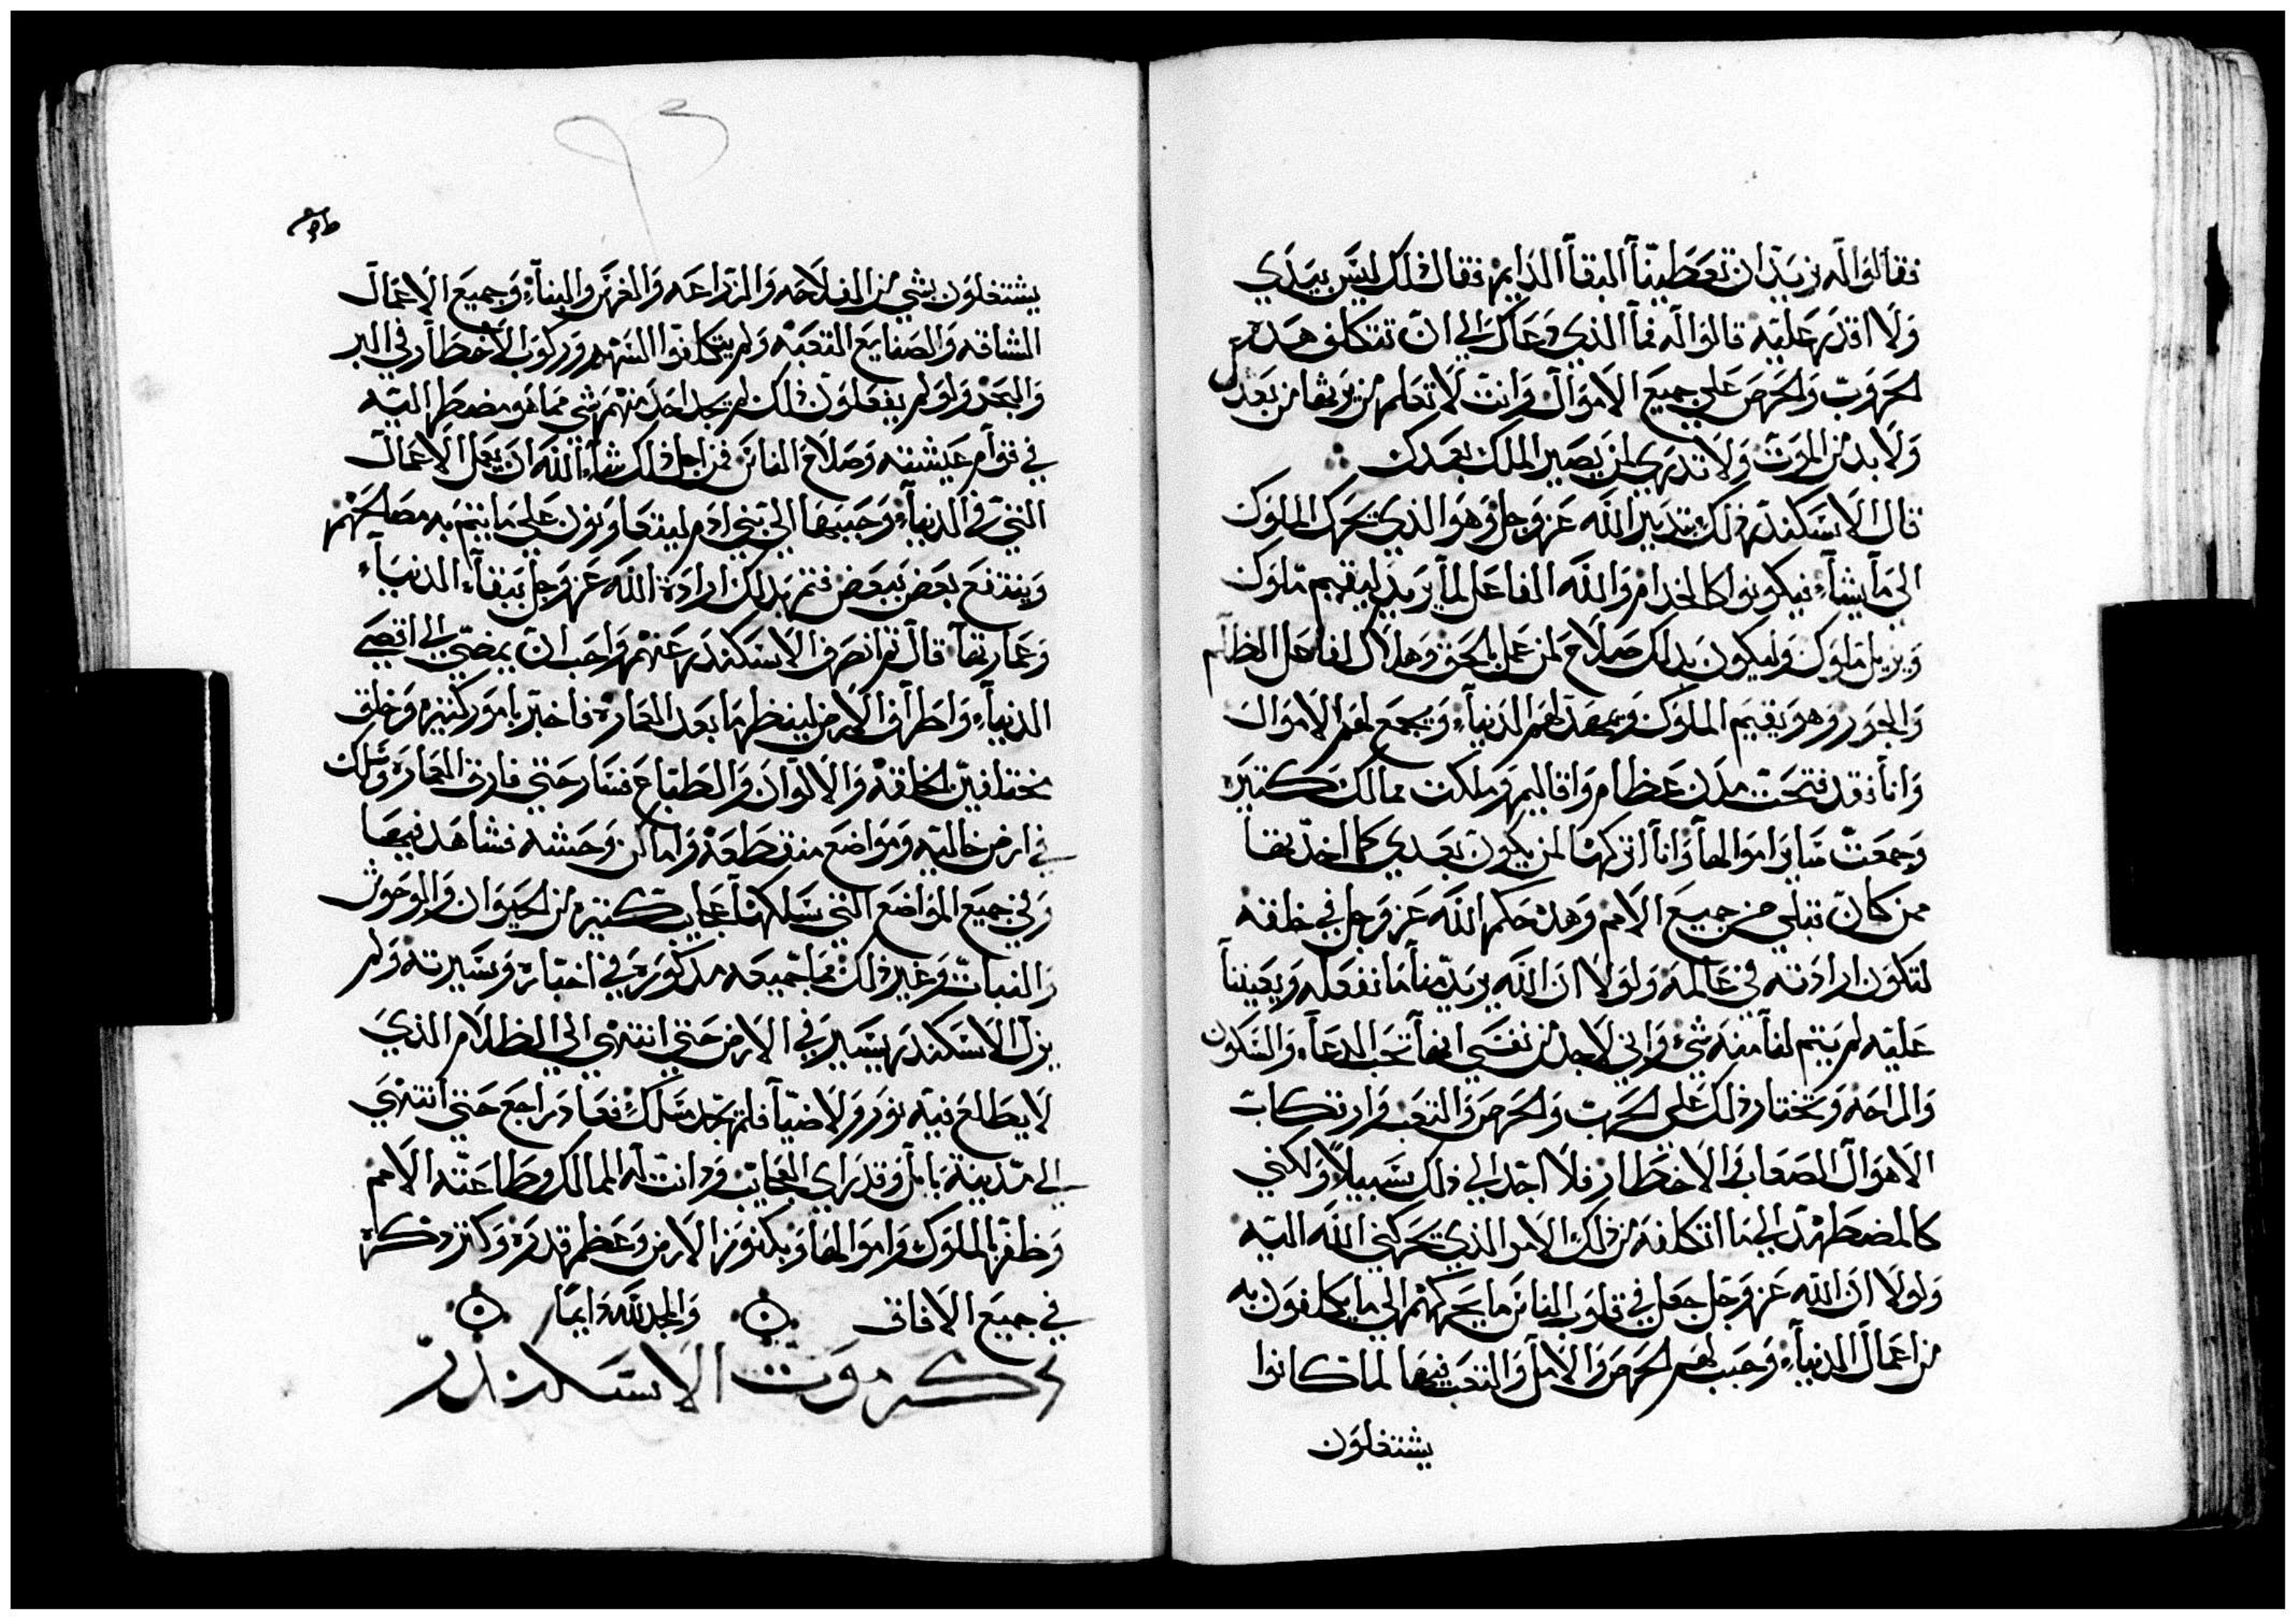 فقالوا له نريد ان تعطينا البقا الدايم فقال ذلك ليس بيدي
ولا اقدر عليه قالوا له فما الذي دعاك الي ان تتكلف هذه
الحروب والحرص علي جميع الاموال وانت لا تعلم من يرثها من بعدك
ولا بد من الموت ولا تدري لمن يصير الملك بعدك
قال الاسكندر ذلك بتدبير الله عز وجل وهو الذي يحرك الملوك
الي ما يشاء فيكونوا كالخدام والله الفاعل لما يريد ليقيم ملوك
ويزيل ملوك وليكون بذلك صلاح لمن عمل بالحق وهلاك لفاعل الظلم
والجور وهو يقيم الملوك ويمهد لهم الدنياء ويجمع لهم الاموال
وانا فقد فتحت مدن عظام واقاليم وملكت ممالك كثيره
وجمعت ساير اموالها وانا اتركها لمن يكون بعدي كما اخذتها
ممن كان قبلي من جميع الامم وهذه حكم الله عز وجل في خلقه
لتكون ارادته في عالمه ولولا ان الله يريد منا ما نفعله ويعيننا
عليه لم يتم لنا منه شيء واني لاجد من نفسي انها تحب الدعاء والسكون
والراحه وتختار ذلك علي الحرب والحرص والتعب وارتكاب
الاهوال الصعاب والاخطار فلا اجد الي ذلك سبيلا ولكني
كالمضطهد الي ما اتكلفه من ذلك الامر الذي يحركني الله اليه
ولولا ان الله عز وجل جعل في قلوب الناس ما يحركهم الي ما يتكلفون به
من اعمال الدنياء وحبب لهم الحرص والامل والتعب فيها لما كانوا
يشتغلون
يشتغلون بشي من الفلاحه والزراعه والغرس والبناء وجميع الاعمال
الشاقه والصنايع المتعبه ولم يتكلفوا السهر وركوب الاخطار في البر
والبحر ولو لم يفعلون ذلك لم يجد احد منهم شي مما هو مضطر اليه
في قوام عيشته وصلاح الناس فمن اجل ذلك شاء الله ان يعمل الاعمال
التي في الدنياء وحببها الي بني ادم ليتعاونون علي ما يتم به مصالحهم
وينتفع بعض ببعض فتم بذلك ارادة الله عز وجل ببقاء الدنياء
وعمارتها قال ثم انصرف الاسكندر عنهم واحب ان يمضي الي اقصي
الدنياء واطراف الارض لينظر ما بعد العماره فاخبر بامور كثيره وخلق
مختلفين الخلقه والالوان والطباع فسار حتي فارق العماره وسلك
في ارض خاليه ومواضع منقطعه واماكن وحشه فشاهد فيها
وفي جميع المواضع التي سلكها عجايب كثيره من الحيوان والوحوش
والنبات وغير ذلك مما جميعه مذكوره في اخباره وسيرته ولم
يزل الاسكندر يسير في الارض حتي انتهي الي الظلام الذي
لا يطلع فيه نور ولا ضيا فلم يجد مسلك فعاد راجع حتي انتهي
الي مدينة بابل وقد راي العجايب ودانت له الممالك وطاعته الامم
وظفر بالملوك واموالها وبكنوز الارض وعظم قدره وكثر ذكره
في جميع الافاق والمجد لله دايما
ذكر موت الاسكندر